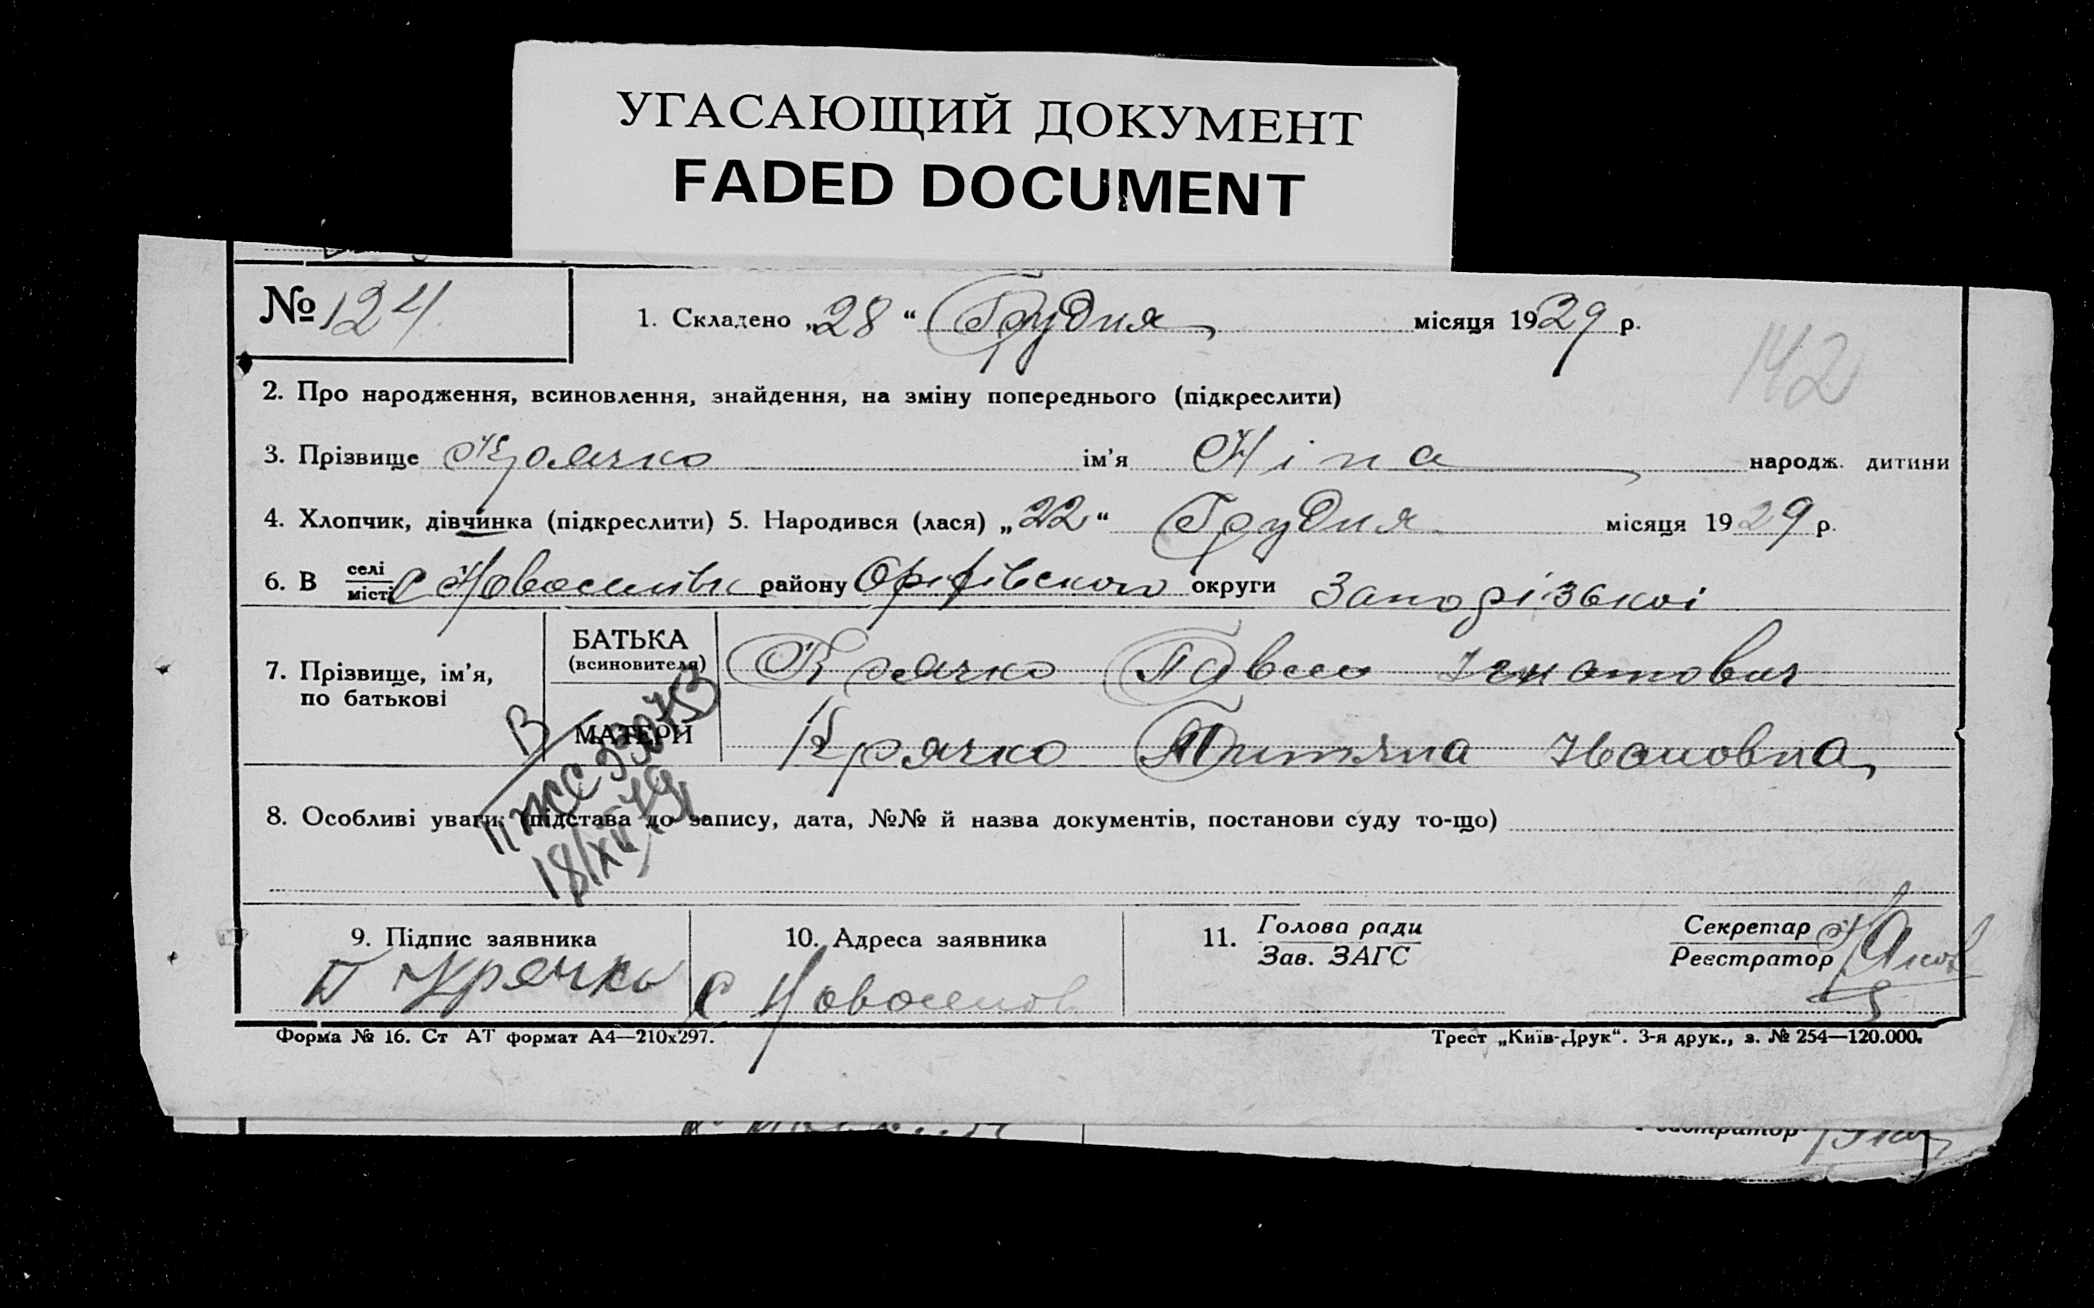 УГАСАЮЩИЙ ДОКУМЕНТ
FADED DOCUMENT
№ 124
1. Складено „28“ Грудня місяця 1929 р.
142
2. Про народження, всиновлення, знайдення, на зміну попереднього (підкреслити)
3. Прізвище Крячко ім'я Ніна народж. дитини
4. Хлопчик, дівчинка (підкреслити) 5. Народився (лася) „22“ Грудня місяця 1929 р.
6. В селі місті с району Оріхівського округи Запорізької
7. Прізвище, ім'я, по батькові
БАТЬКА (всиновителя) Крячко Павло Ігнатович
МАТЕРИ Крячко Ивановна
В
18/XII 79
8. Особливі уваги: (підстава до запису, дата, №№ й назва документів, постанови суду то-що)
9. Підпис заявника
П Крячко
10. Адреса заявника
с Новоселов
11. Голова ради
Зав. ЗАГС
Секретар
Реєстратор
Форма № 16. Ст АТ формат А4—210х297.
Трест „Київ-Друк“. 3-я друк., з. № 254—120.000.